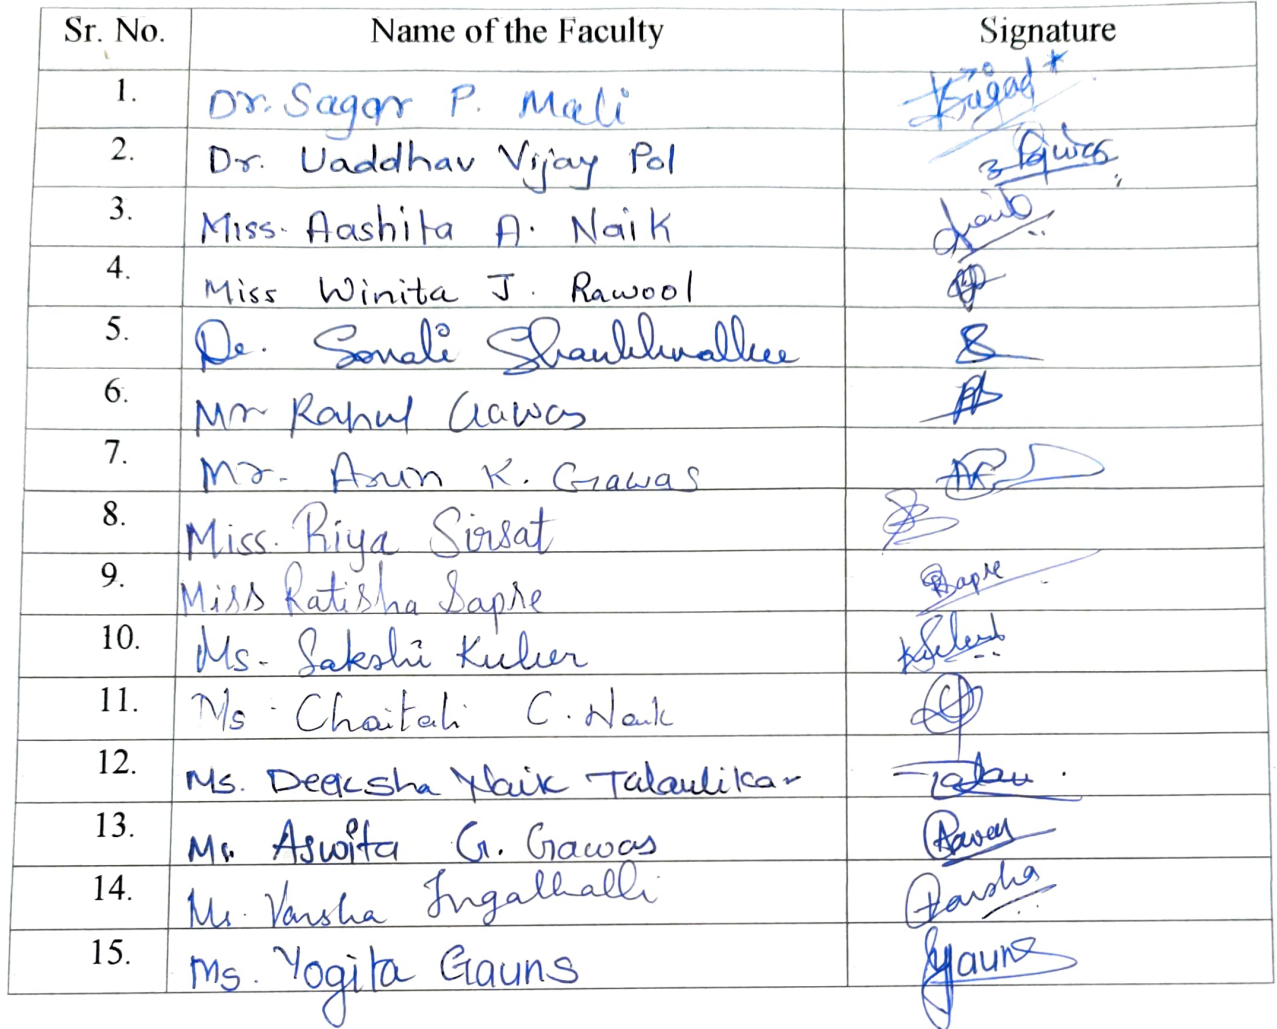 Sr. No. Name of the Faculty Signature
1. Dr. Sagar P. Mali
2. Dr. Uaddhav Vijay Pol
3. Miss. Aashita A. Naik
4. Miss Winita J. Rawool
5. De. Sonali
6. Mr Rahul Gawas
7. Mr. Arun K. Gawas
8. Miss. Riya Sirsat
9. Miss Ratisha Sapre Sapre
10. Ms. Sakshi
11. Ms. Chaitali C. Naik
12. Ms. Deeksha Naik Talaulikar
13. Ms. Aswita G. Gawas
14. Ms. Varsha Ingalhalli Varsha
15. Ms. Yogita Gauns Gauns